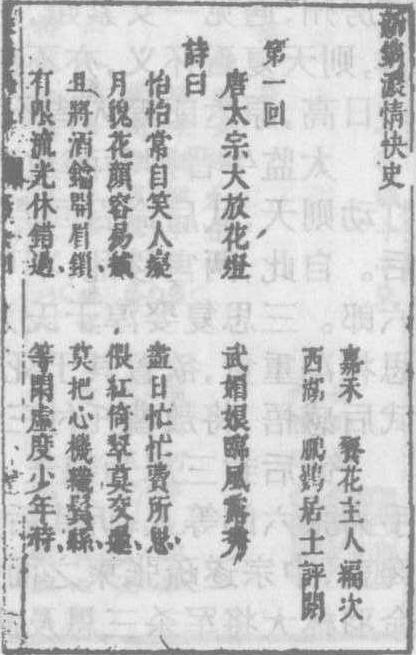 新鐫濃情快史
嘉禾 餐花主人編次
西湖 鵬鷃居士評閱
第一回
唐太宗大放花燈 武媚娘臨風露秀
詩曰
怡怡常自笑人癡 盡日忙忙費所思
月貌花顏容易 偎紅倚翠莫交遲
且將酒鑰開眉鎖 莫把心機鬢絲
有限流光休錯過 等閒虛度少年時